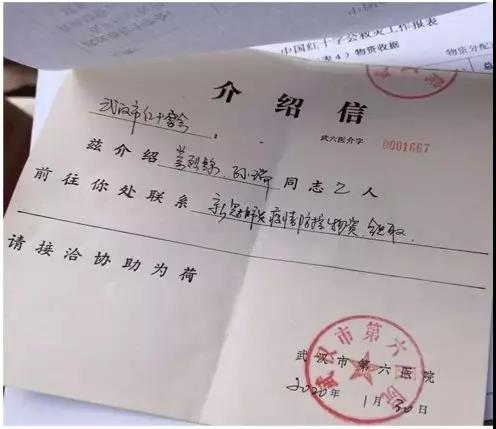 中国红十字会救灾工作报表
表4）物资收据
物资分配
介绍信
武汉市红十字会：
武六医介字 0001667
兹介绍 孙 同志乙人
前往你处联系 新冠肺炎疫情防控物资领取.
请接洽协助为荷
武汉市第六医院
武汉市第六医院
2020年1月30日